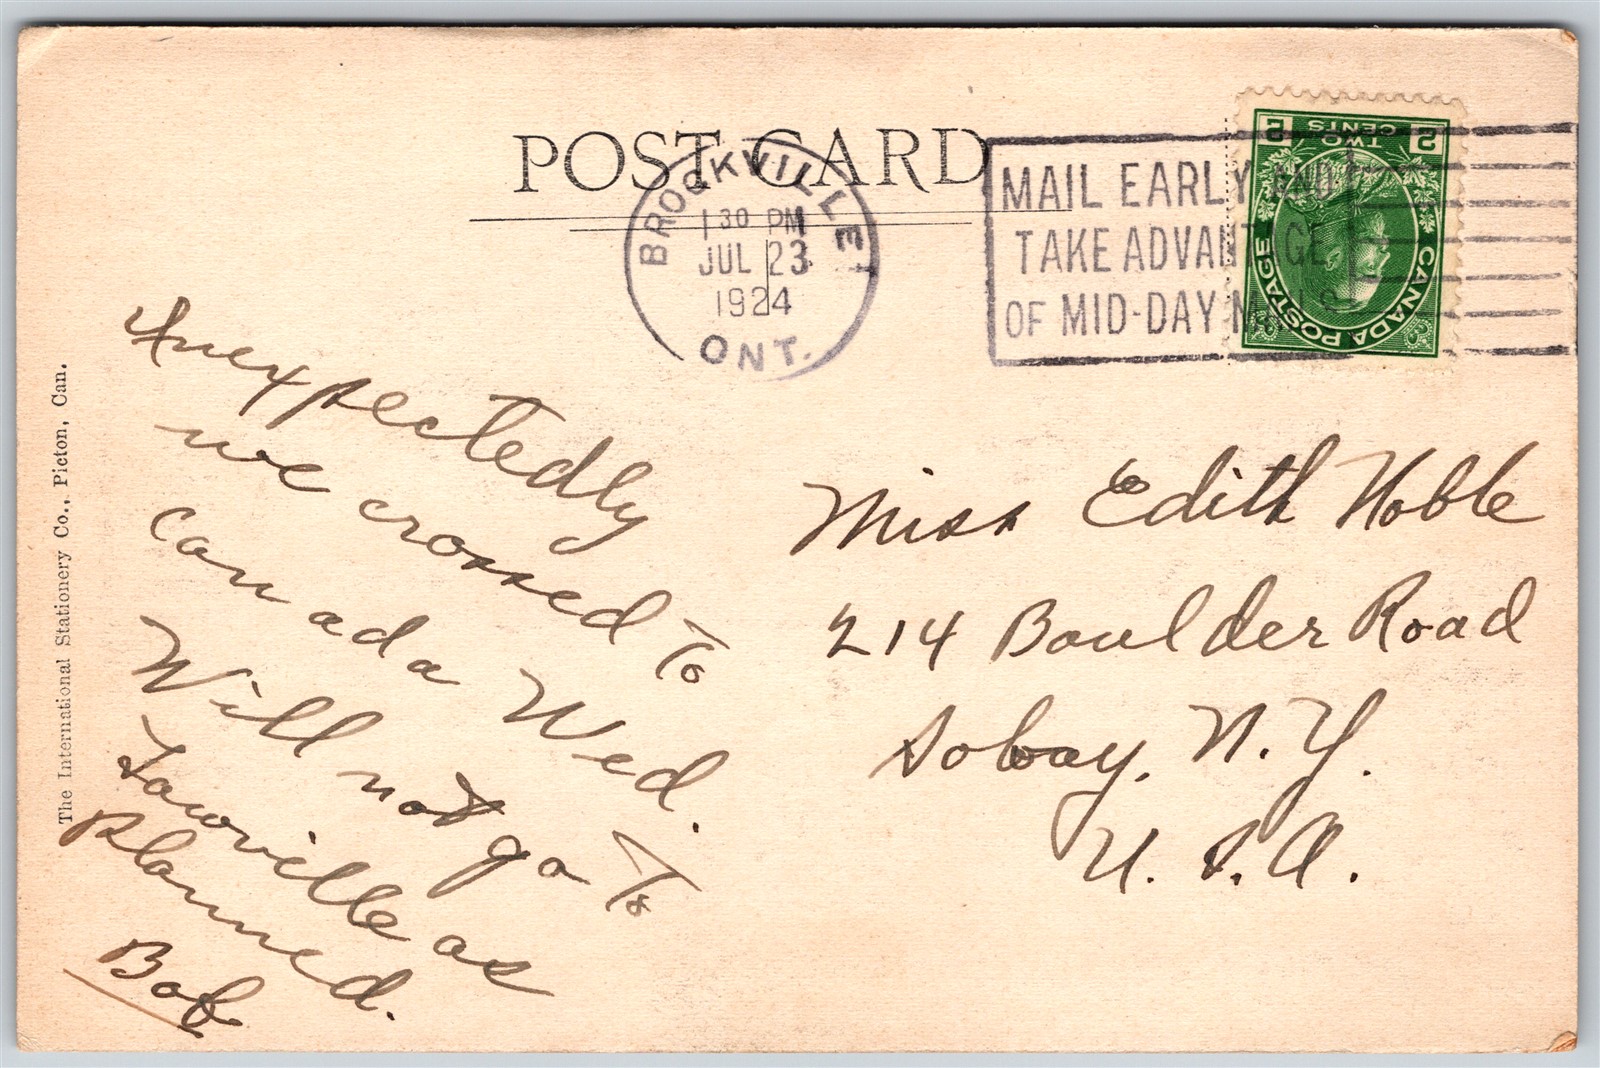 POST CARD
BROCKVILLE
1 30 PM
JUL 23
1924
ONT.
MAIL EARLY AND
TAKE ADVANTAGE
OF MID-DAY MAILS
2 TWO CENTS 2
CANADA POSTAGE
Unexpectedly
we crossed to
Canada Wed.
Will not go to
Lowville as
Planned.
Bob
Miss Edith Noble
214 Boulder Road
Solvay, N.Y.
U.S.A.
The International Stationery Co., Picton, Can.